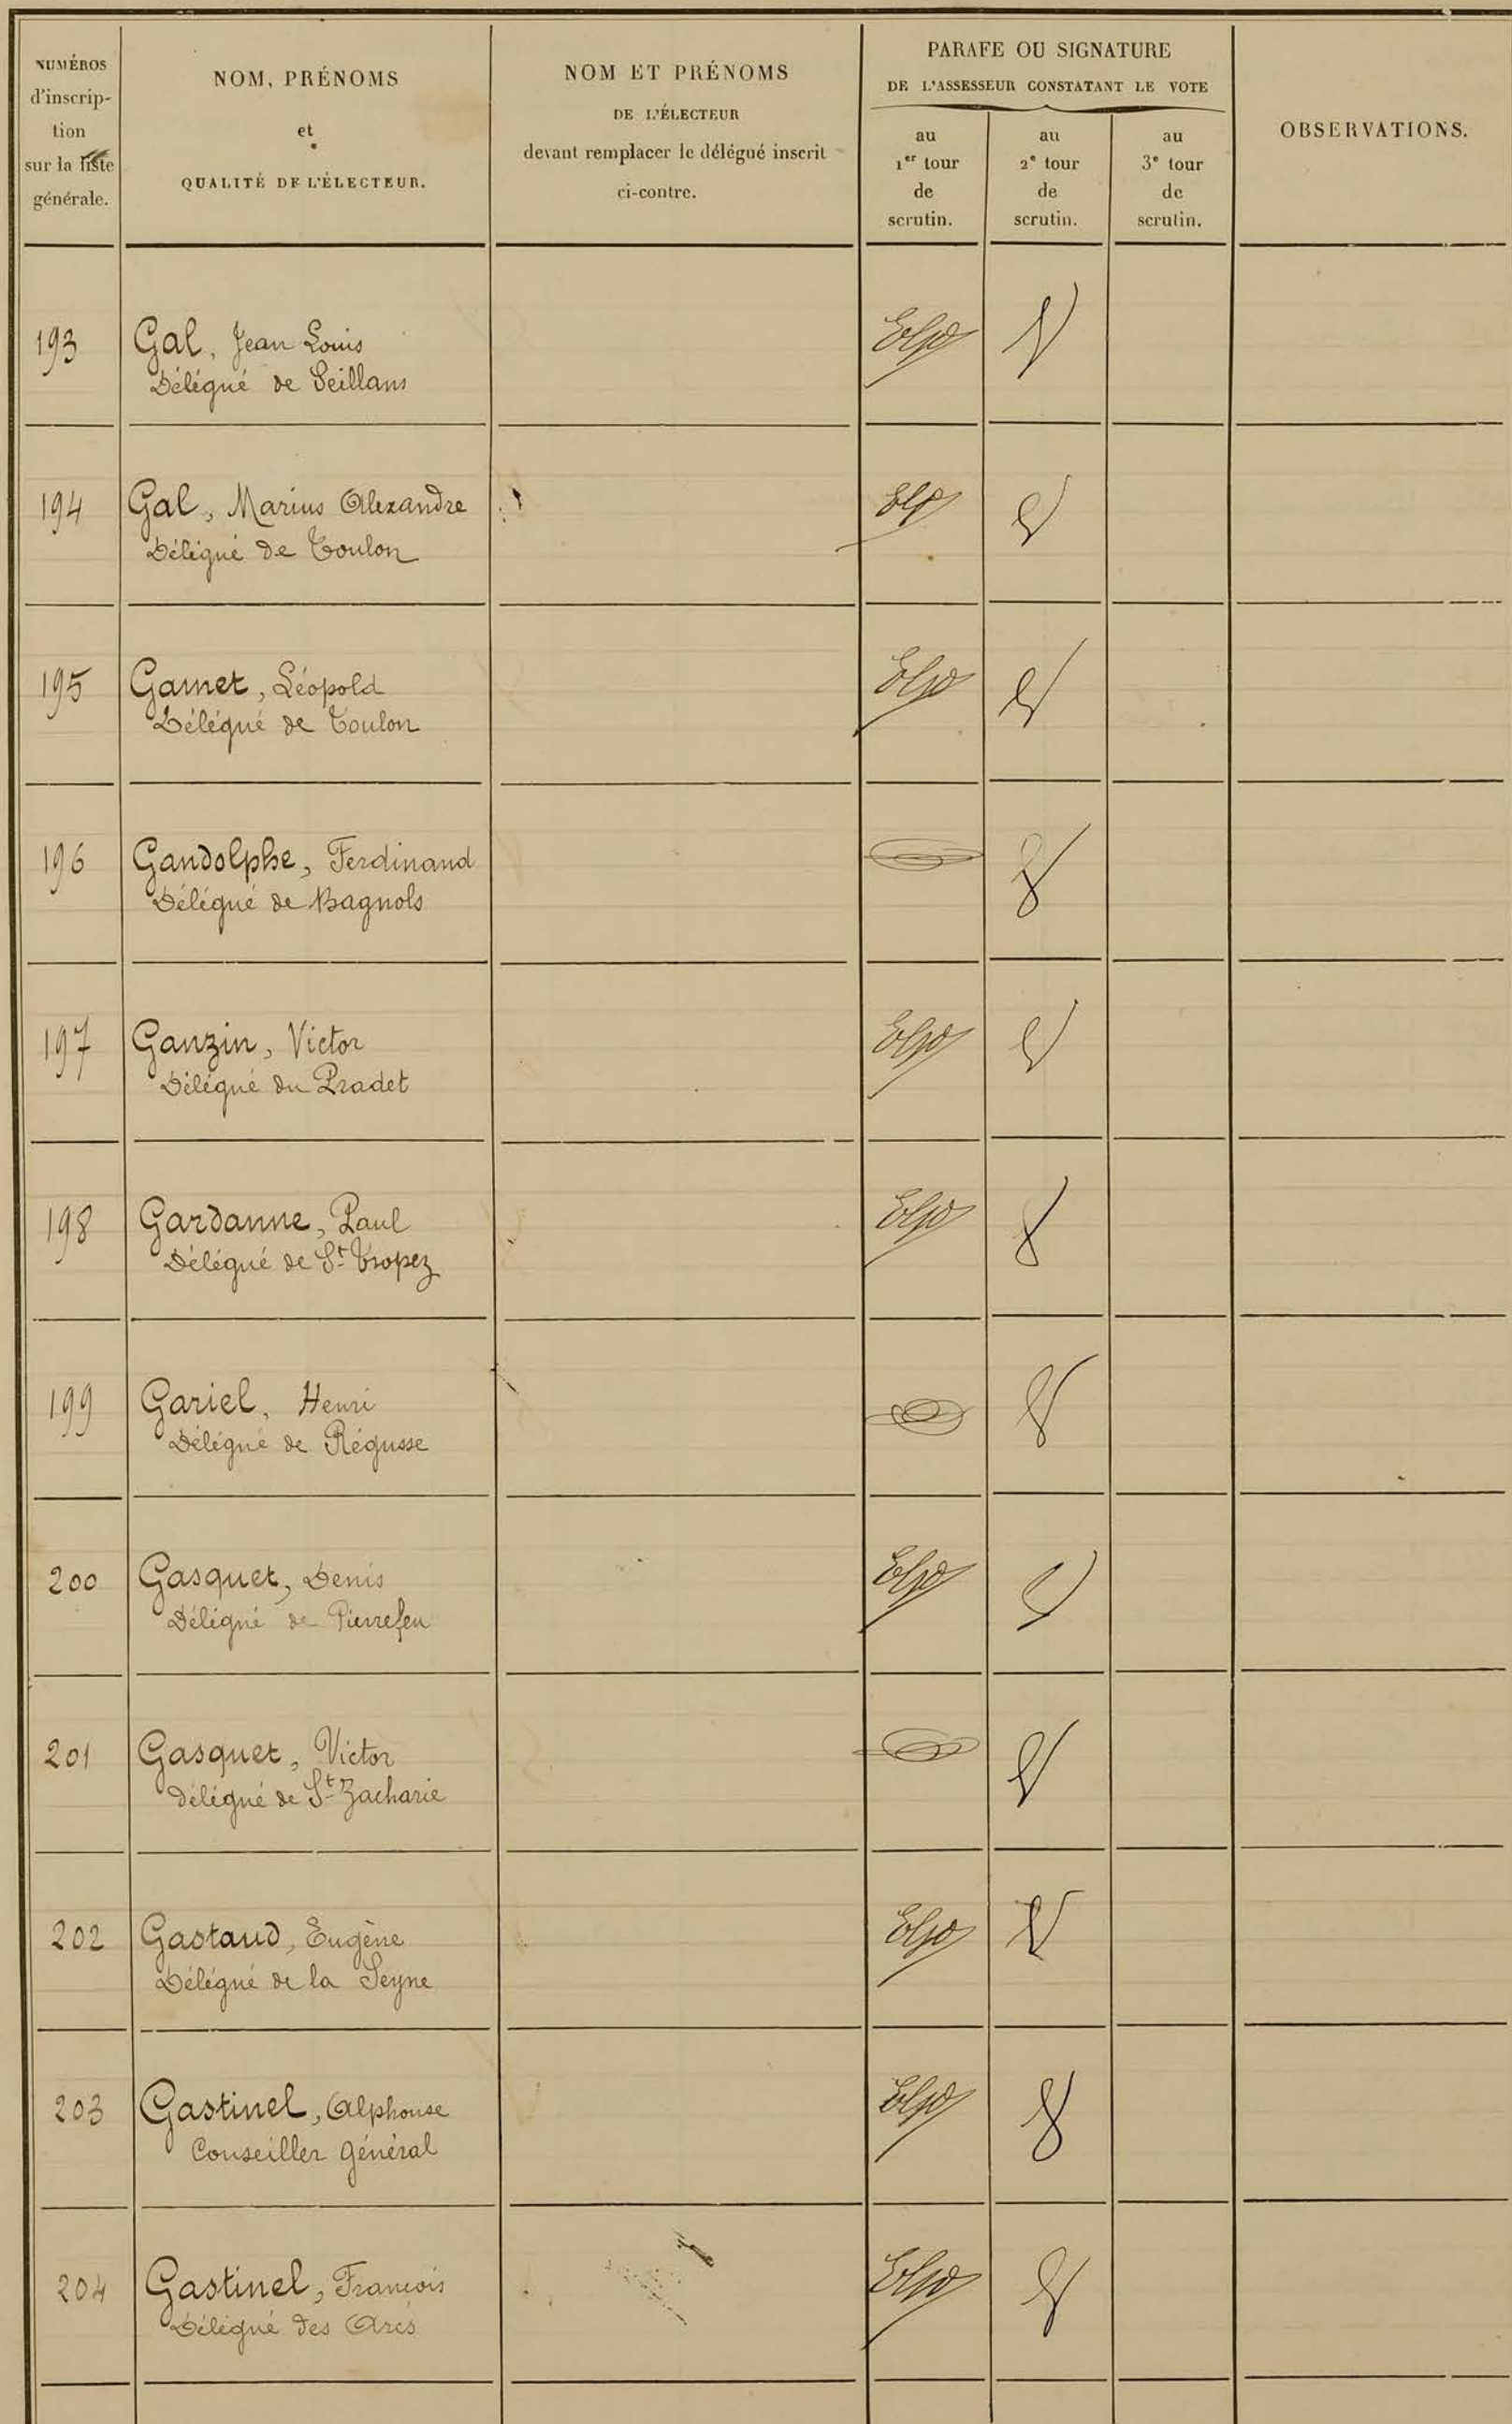 NUMÉROS
d'inscrip-
tion
sur la liste
générale.
NOM, PRÉNOMS
et
QUALITÉ DE L'ÉLECTEUR.
NOM ET PRÉNOMS
DE L'ÉLECTEUR
devant remplacer le délégué inscrit
ci-contre.
PARAFE OU SIGNATURE
DE L'ASSESSEUR CONSTATANT LE VOTE
au
1er tour
de
scrutin.
au
2e tour
de
scrutin.
au
3e tour
de
scrutin.
OBSERVATIONS.
193
Gal, Jean Louis
Délégué de Seillans
194
Gal, Marius Alexandre
Délégué de Toulon
195
Gamet, Léopold
Délégué de Toulon
196
Gandolphe, Ferdinand
Délégué de Bagnols
197
Ganzin, Victor
Délégué du Pradet
198
Gardanne, Paul
Délégué de St Tropez
199
Gariel, Henri
Délégué de Régusse
200
Gasquet, Denis
Délégué de Pierrefeu
201
Gasquet, Victor
Délégué de St Zacharie
202
Gastaud, Eugène
Délégué de la Seyne
203
Gastinel, Alphonse
Conseiller Général
204
Gastinel, François
Délégué des Arcs